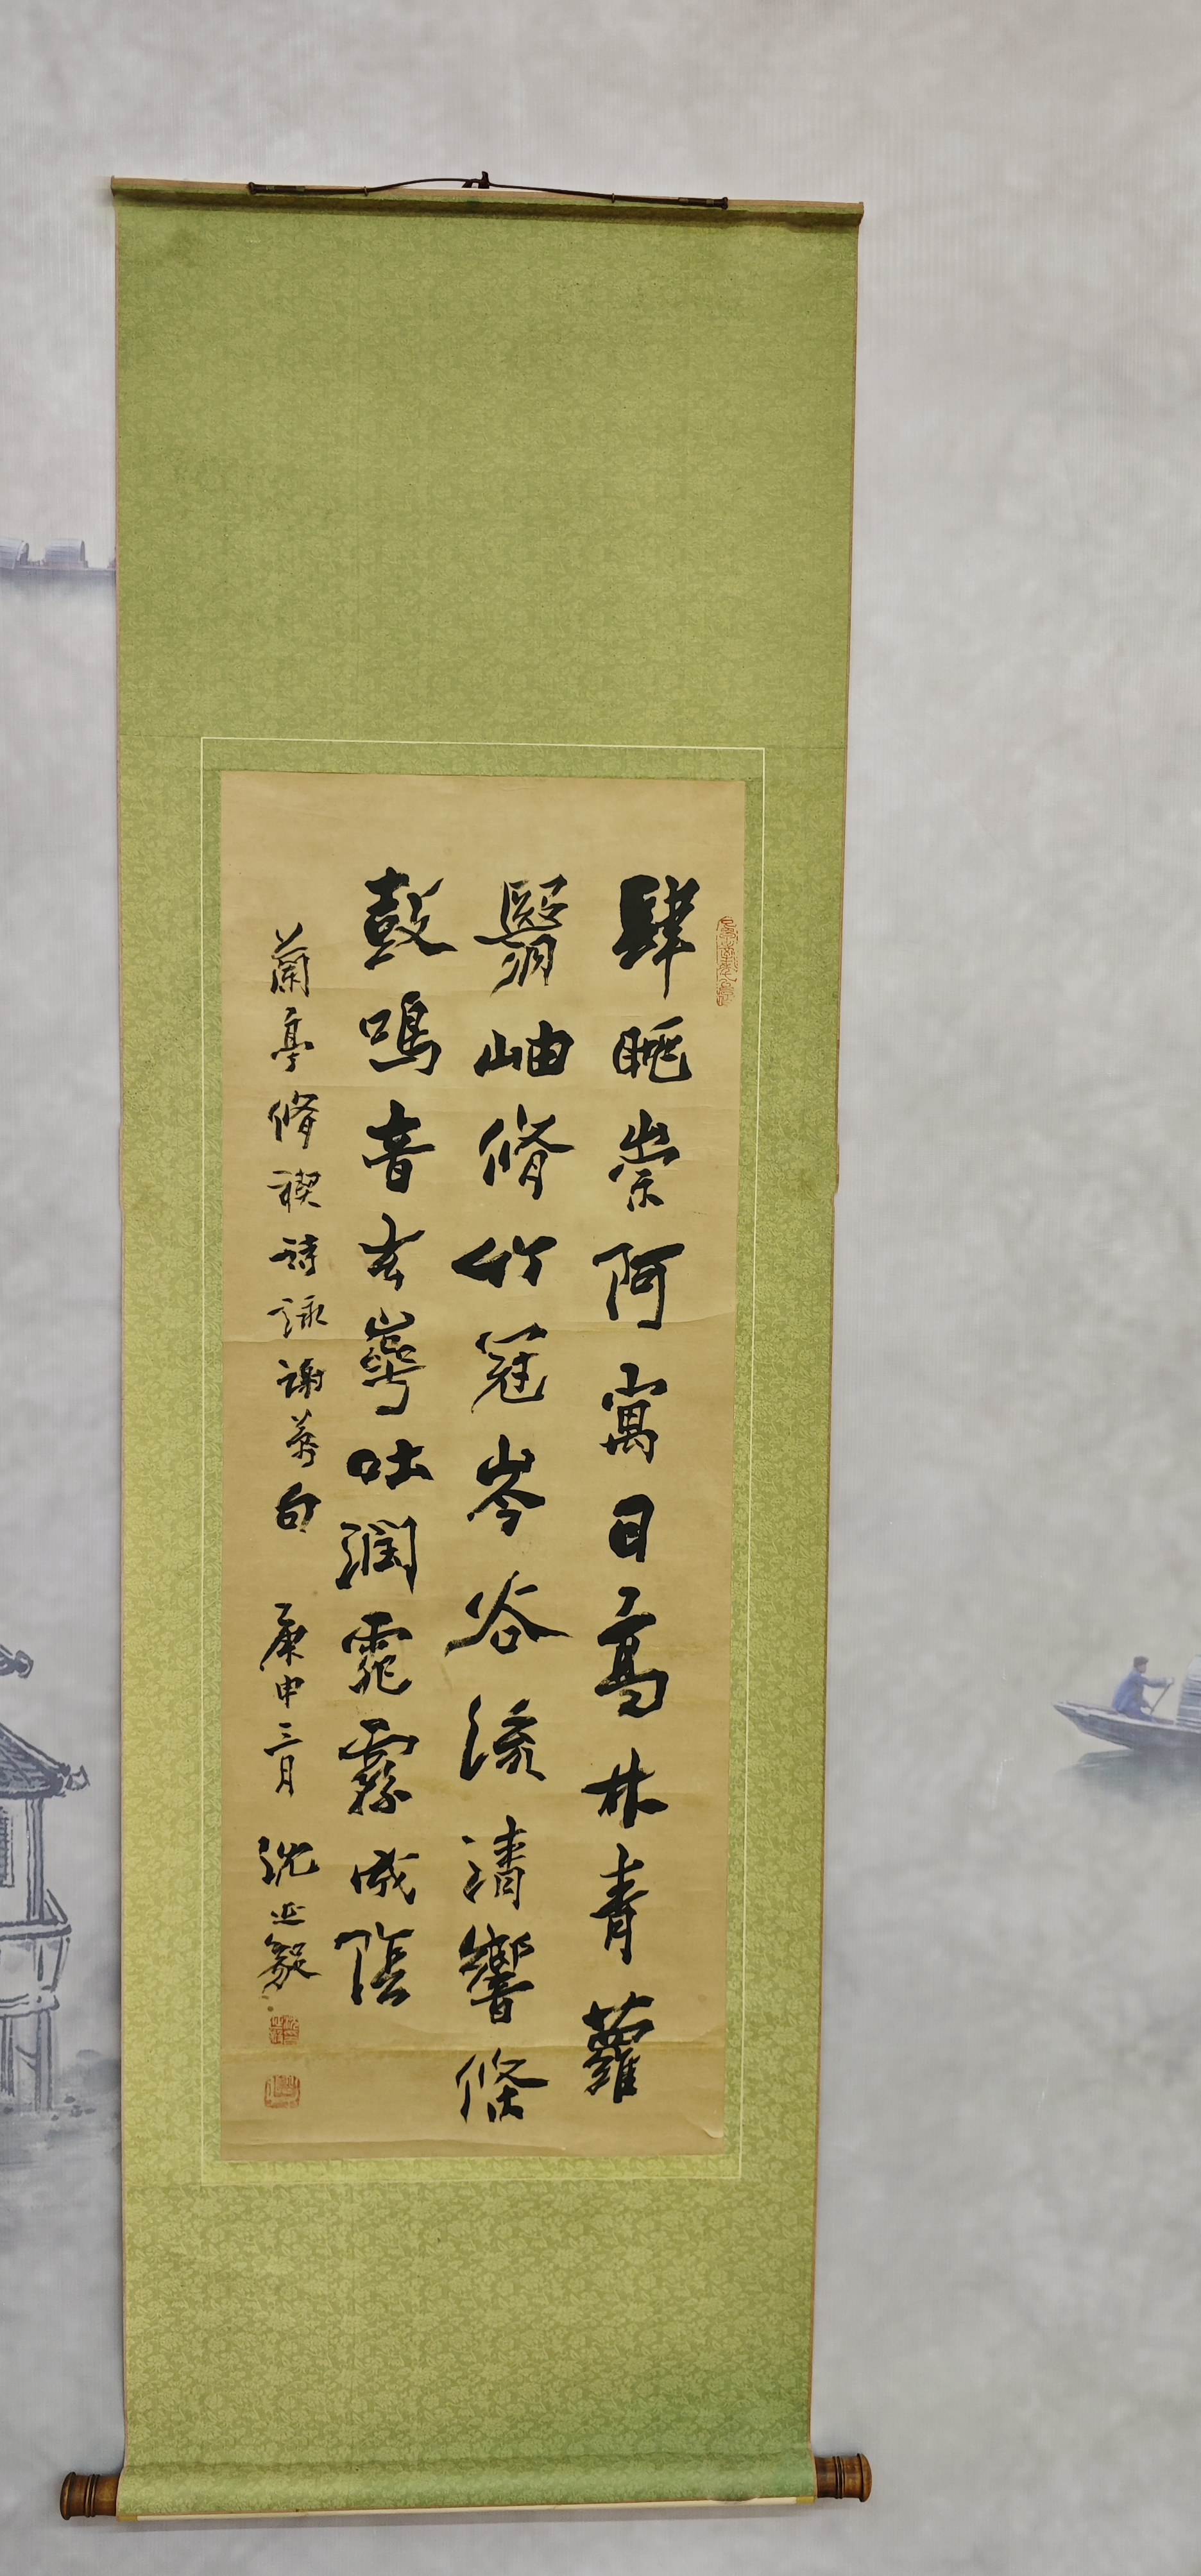 肆眺崇阿寓目高林青蘿
翳岫脩竹冠岑谷流清響條
鼓鳴音玄崿吐潤霏霧成陰
蘭亭脩禊詩詠謝萬句 庚申三月 沈